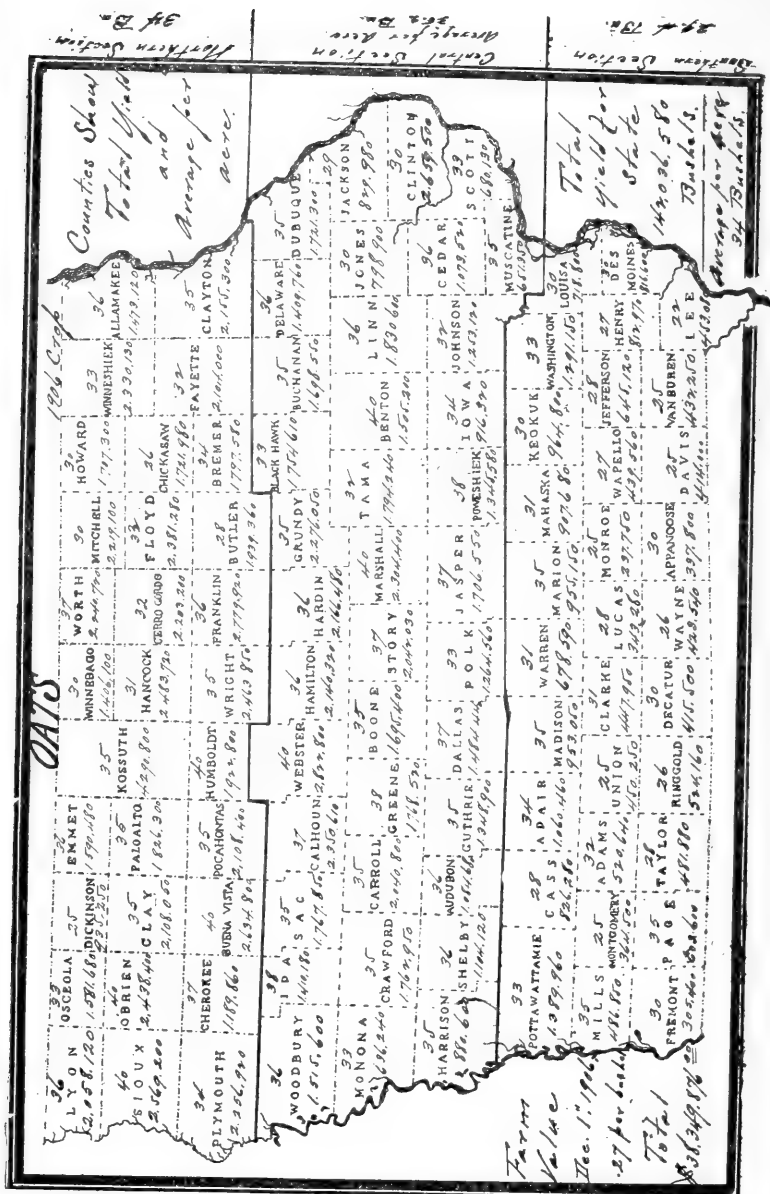 OATS
1906 Crop
Counties Show
Total Yield
and
Average per
acre.
Northern Section
34 Bu.
Central Section
Average per Acre
36½ Bu.
Southern Section
29.4 Bu.
36
LYON
2,058,120
33
OSCEOLA
1,581,680
25
DICKINSON
36
EMMET
1,590,480
35
KOSSUTH
4,290,800
30
WINNEBAGO
1,406,100
37
WORTH
30
MITCHELL
2,219,100
30
HOWARD
1,707,300
33
WINNESHIEK
2,330,130
36
ALLAMAKEE
1,473,120
40
SIOUX
2,569,200
40
OBRIEN
2,438,400
35
CLAY
2,108,050
35
PALO ALTO
1,826,300
31
HANCOCK
2,483,720
32
CERRO GORDO
2,203,200
33
FLOYD
2,381,280
36
CHICKASAW
1,721,980
32
FAYETTE
2,101,000
35
CLAYTON
2,155,300
34
PLYMOUTH
2,256,920
37
CHEROKEE
1,189,860
40
BUENA VISTA
2,634,800
35
POCAHONTAS
2,108,400
40
HUMBOLDT
1,922,800
35
WRIGHT
2,463,850
36
FRANKLIN
2,779,920
28
BUTLER
1,939,360
34
BREMER
1,797,580
36
WOODBURY
1,515,600
38
IDA
1,410,180
35
SAC
1,767,850
37
CALHOUN
2,350,610
40
WEBSTER
2,822,800
36
HAMILTON
2,140,320
36
HARDIN
2,166,480
35
GRUNDY
2,276,050
33
BLACK HAWK
1,754,610
35
BUCHANAN
1,698,550
36
DELAWARE
1,409,760
35
DUBUQUE
1,721,300
33
MONONA
636,240
35
CRAWFORD
1,762,950
35
CARROLL
2,040,800
38
GREENE
1,718,520
35
BOONE
1,695,400
37
STORY
2,042,030
40
MARSHALL
2,304,400
32
TAMA
1,794,240
40
BENTON
1,505,200
36
LINN
1,830,600
30
JONES
798,900
29
JACKSON
809,980
30
CLINTON
2,659,500
35
HARRISON
880,600
36
SHELBY
1,104,120
36
AUDUBON
35
GUTHRIE
1,348,900
37
DALLAS
33
POLK
1,264,560
37
JASPER
1,706,550
38
POWESHIEK
1,346,580
34
IOWA
916,320
32
JOHNSON
1,253,120
36
CEDAR
1,073,520
33
SCOTT
680,130
35
MUSCATINE
33
POTTAWATTAMIE
1,389,960
28
CASS
826,280
34
ADAIR
1,060,460
35
MADISON
953,050
31
WARREN
678,590
35
MARION
955,150
31
MAHASKA
907,680
30
KEOKUK
964,800
33
WASHINGTON
1,291,150
30
LOUISA
718,800
35
MILLS
486,850
25
MONTGOMERY
364,500
32
ADAMS
520,640
25
UNION
450,250
31
CLARKE
447,950
28
LUCAS
343,280
25
MONROE
237,750
27
WAPELLO
439,560
28
JEFFERSON
645,120
27
HENRY
DES
MOINES
30
FREMONT
35
PAGE
28
TAYLOR
481,880
26
RINGGOLD
524,160
30
DECATUR
415,500
26
WAYNE
423,540
30
APPANOOSE
397,800
25
DAVIS
25
VAN BUREN
432,250
22
LEE
Farm
Value
Dec. 1st 1906
.27 per bushel
Total
$38,349,876
Total
Yield for
State
142,036,580
Bushels.
Average per Acre
34 Bushels.